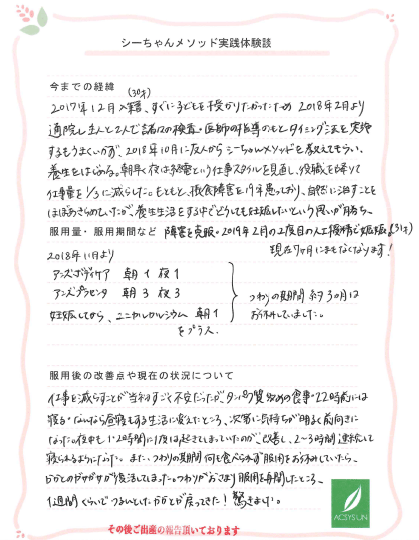 シーちゃんメソッド実践体験談
今までの経緯
(30才)
2017年12月入籍、すぐに子どもを授かりたかったため 2018年2月より
通院し主人と2人で諸々の検査。医師の指導のもとタイミング法を実施
するもうまくいかず、2018年10月に友人からシーちゃんメソッドを教えてもらい、
養生をはじめる。朝早く夜は終電という仕事スタイルを見直し、役職を降りて
仕事量を1/3に減らした。もともと、摂食障害を19年患っており、自然に治すことを
ほぼあきらめていたが、養生生活をする中でどうしても妊娠したいという思いが勝ち、
服用量・服用期間など 障害を克服。2019年2月の2度目の人工授精で妊娠!(31才)
現在7ヶ月にまもなくなります!
2018年11月より
アンズボディケア 朝1 夜1
アンズプラセンタ 朝3 夜3
妊娠してから、ユニカルカルシウム 朝1
をプラス。
つわりの期間 約3ヵ月は
お休みしていました。
服用後の改善点や現在の状況について
仕事を減らすことが当初すごく不安だったが、タンパク質多めの食事・22時前には
寝る・なんなら昼寝もする生活に変えたところ、次第に気持ちが明るく前向きに
なった。夜中も1・2時間に1度は起きてしまっていたのが、改善し、2~3時間連続して
寝られるようになった。また、つわりの期間何も食べられず服用をお休みしていたら、
かかとのガサガサが復活してしまった。つわりがおさまり服用を再開したところ、
1週間くらいでつるんとしたかかとが戻ってきた!驚きました。
ACSYSUN
その後ご出産の報告頂いております